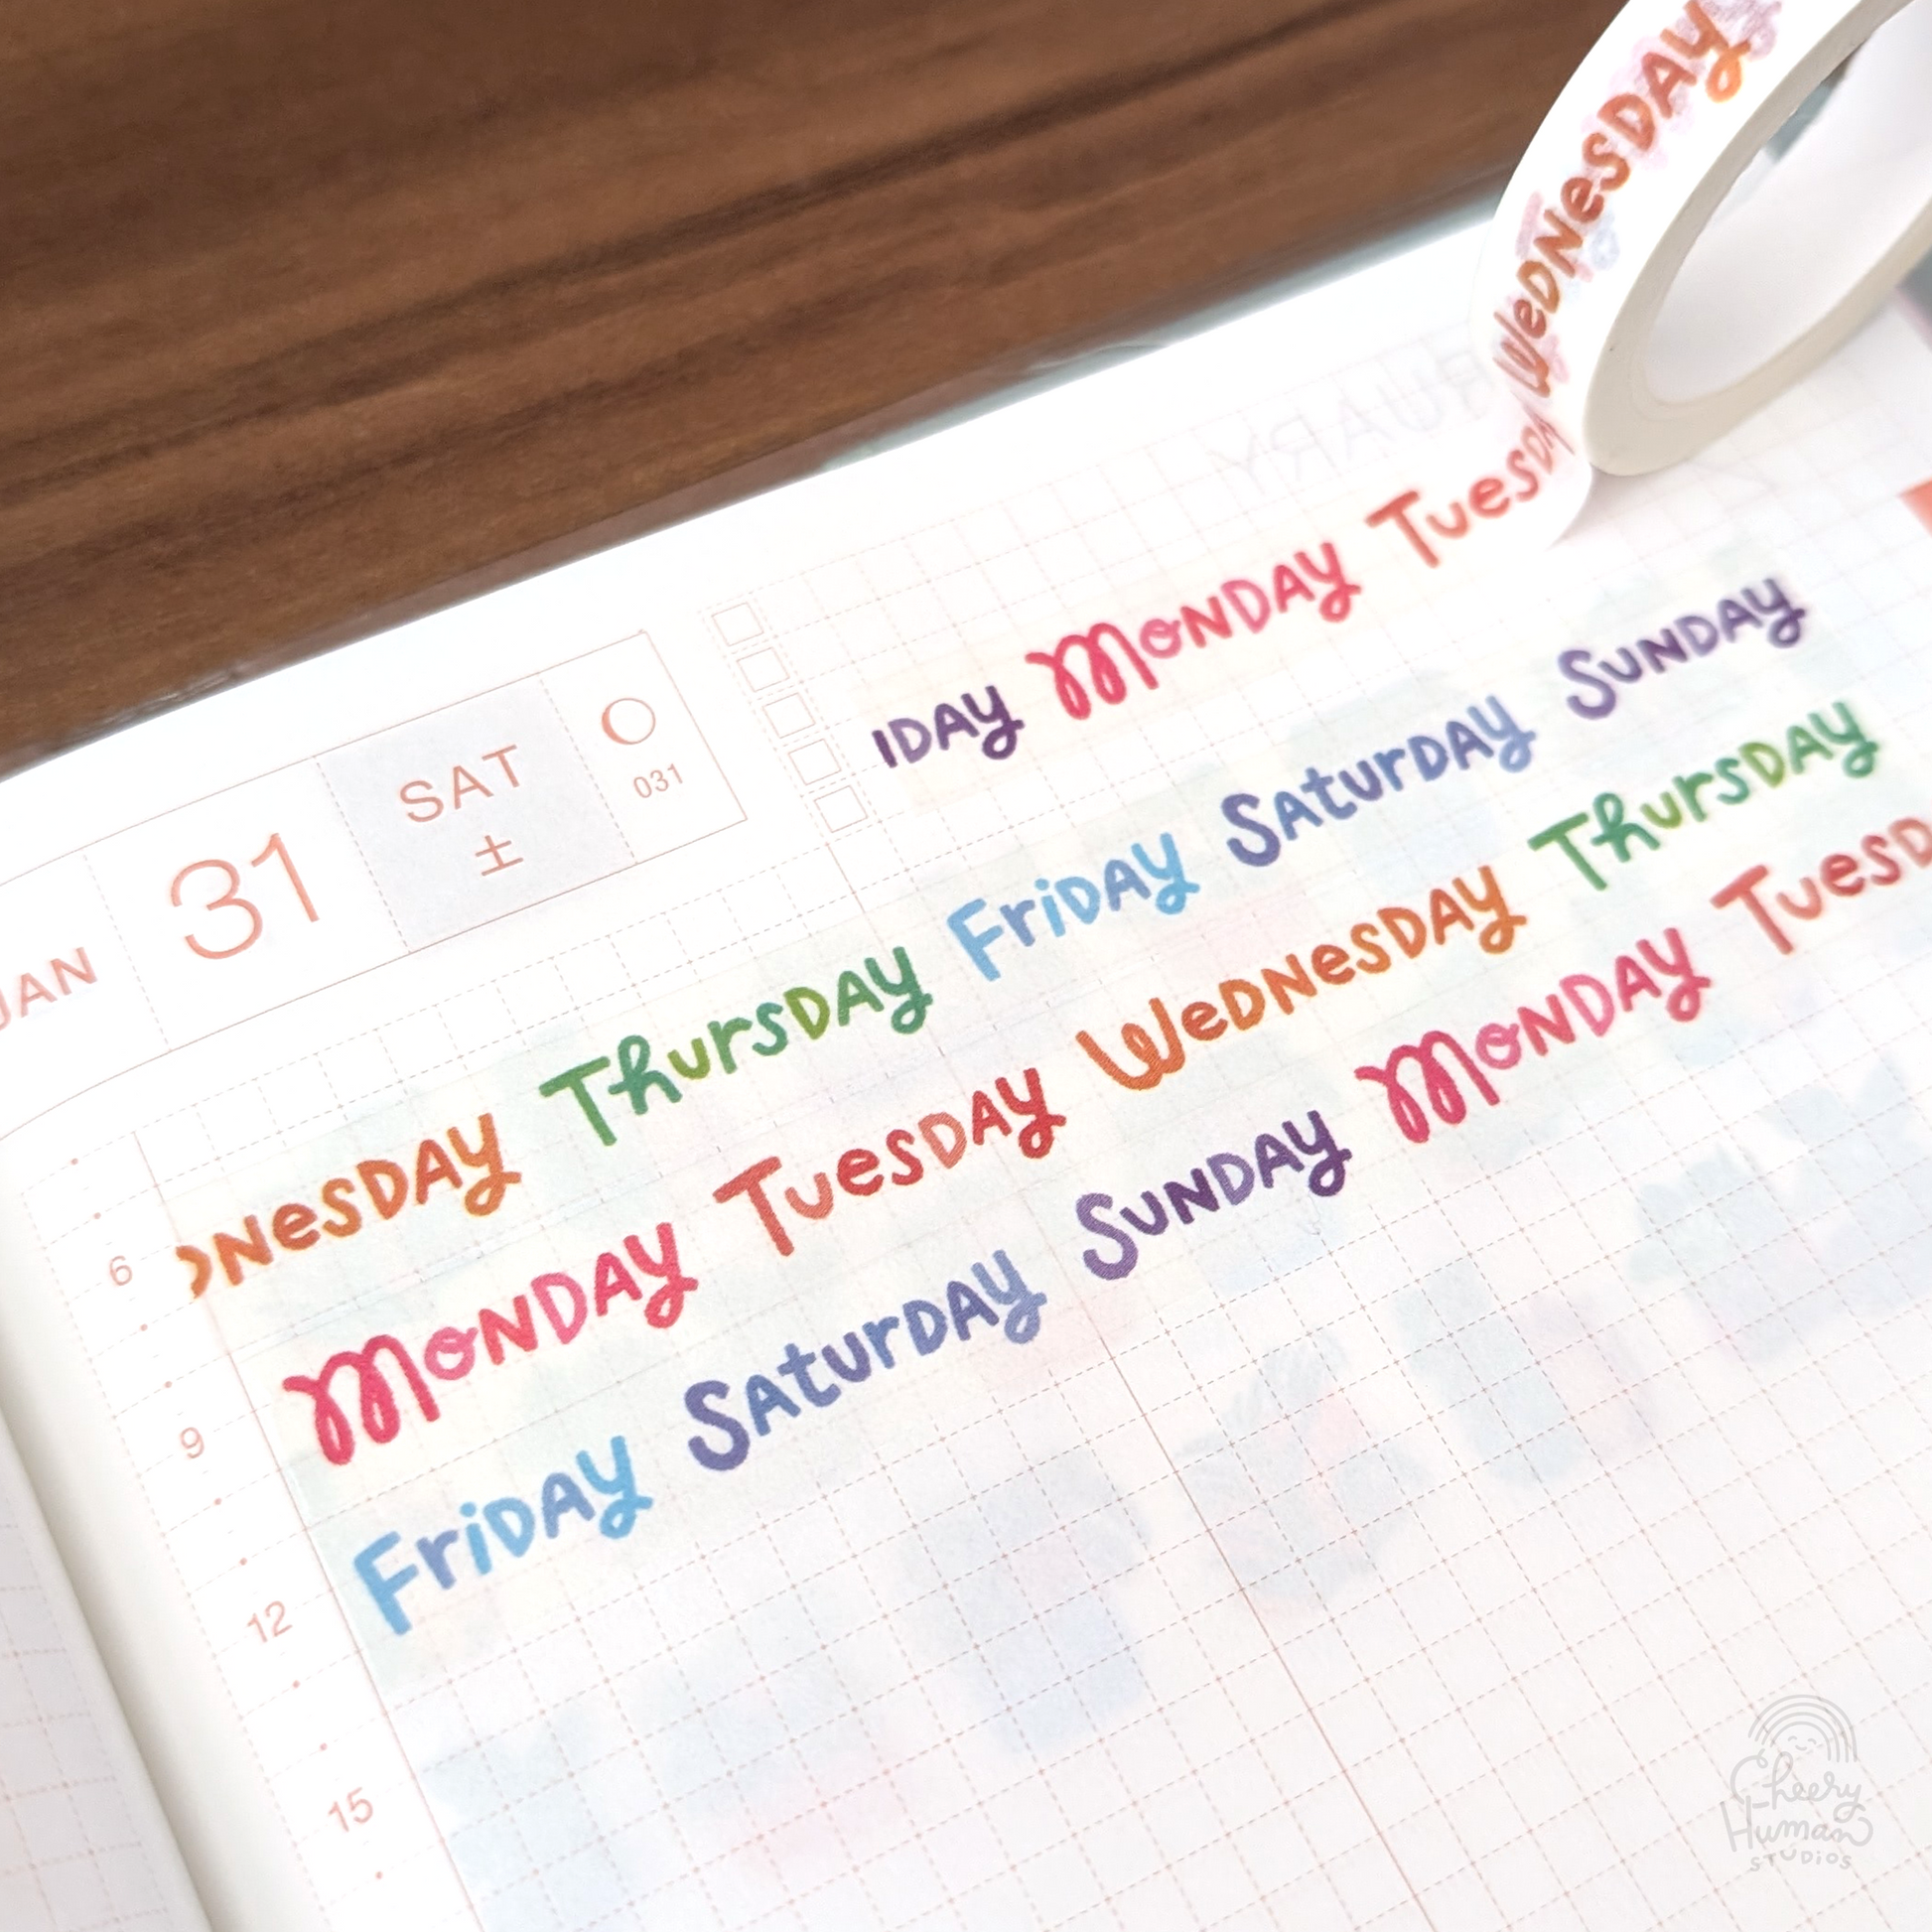 WeDNesDAY
IDAY MoNDAY TuesDA
JAN 31 SAT 土 031
NesDAY ThursDAY FriDAY SAturDAY SuNDAY
6
MoNDAY TuesDAY WeDNesDAY ThursDAY
9
FriDAY SAturDAY SuNDAY MoNDAY TuesD
12
15
Cheery
Human
STUDIOS